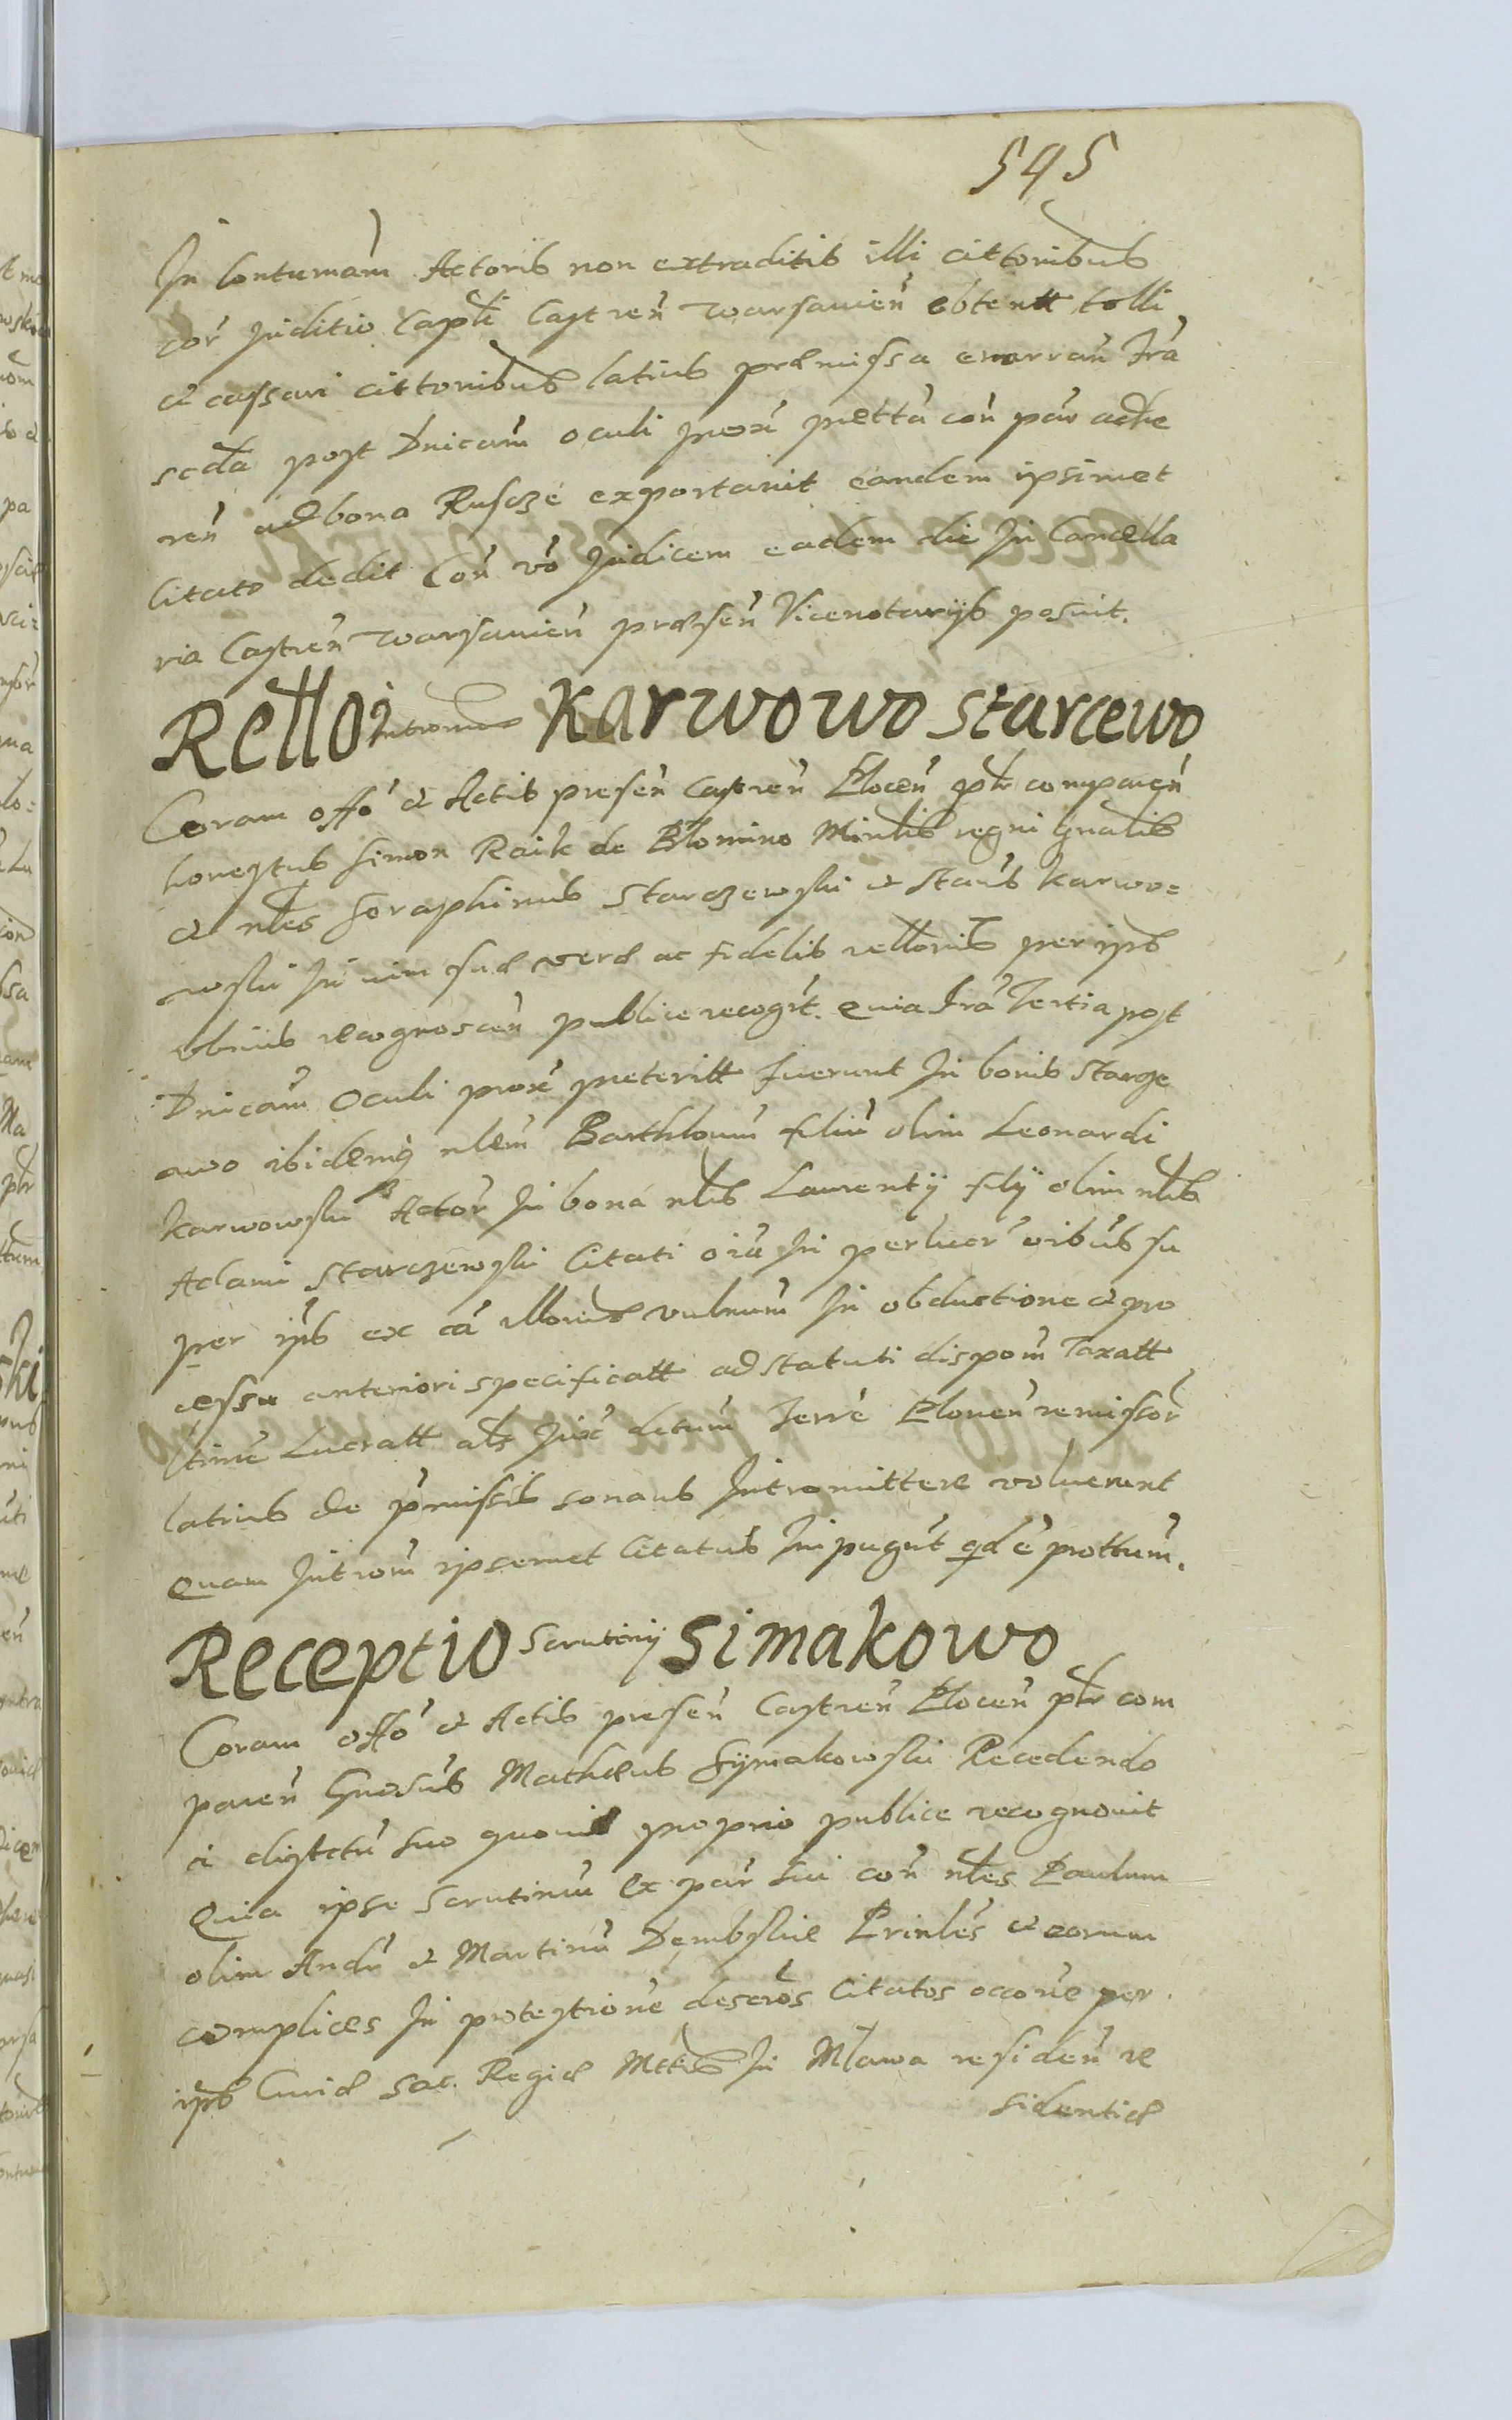 545
In Contumam Actoris non extraditis illi cittonibus
cor Juditio Capli Castren Warsavien obtentt tolli
et cassari cittonibus latius præmissa enarran Fra
scda post Dnicam oculi prox prætta con par adhe
ren ad bona Ruscze exportavit eandem ipsimet
Citato dedit Con vo Judicem eadem die In Cancella
ria Castren Warsavien præsen Vicenotarijs posuit.
Retto Intromis Karwowo Starcewo
Coram offo et Actis presen Castren Plocen pltr comparen
honestus Simon Raik de Blomino Minlis regni Gnalis
et nles Seraphinus Starczewski et Staus Karwo=
wski In vim suæ veræ ac fidelis rettonis per ips
obrius recognoscen publice recogt. Quia Fra Tertia post
Dnicam Oculi prox preteritt fuerunt In bonis Starcze
owo ibidemq nlem Barthlomm filiu olim Leonardi
Karwowski Actor In bona nlis Laurentij filij olim nlis
Adami Starczewski Citati oia In perlucr oibus su
per ips ex ca illorum vulnum In obductione et pro
cessu anteriori specificatt ad statuti disponm Taxatt
ltime Lucratt als Jux decrum Terre Plonen remissor
latius de pmissis sonans Intromittere voluerunt
Quam Introm ipsemet Citatus Impugnt qd e prottum.
Receptio Scrutinij Simakowo
Coram offo et Actis presen Castren Plocen pltr com
paren Gnosus Mathæus Symakowski Recedendo
a distctu suo quovis proprio publice recognovit
Quia ipse scrutinium ex par sui con nles Paulum
olim Andr et Martinu Dembskie Prinles et eorum
complices In protestione descros Citatos occone per
ips Curiæ Sac. Regiæ Mttis In Mlawa residen re
sidentiæ